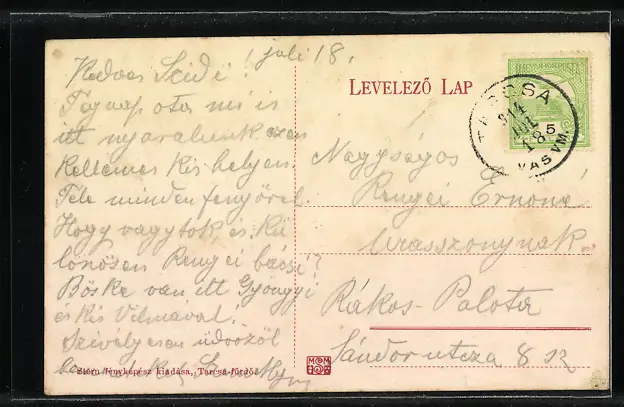 juli 18.
Kedves Szidi!
Tegnap ota mi is
itt nyaralunk ezen
kellemes kis helyen.
Tele minden fenyővel.
Hogy vagytok és kü
lönösen Rengei bácsi?
Böske van itt Gyöngyi
és kis Vilmával.
Szívélyesen üdvözöl
benneteket
Stern fényképész kiadása, Tarcsa-fürdő.
LEVELEZŐ LAP
MAGYAR KIR. POSTA
TARCSA
914
JUL
18 5
VAS VM.
Nagyságos
Rengei Ernőné
urasszonynak
Rákos-Palota
Sándor utcza 8 sz